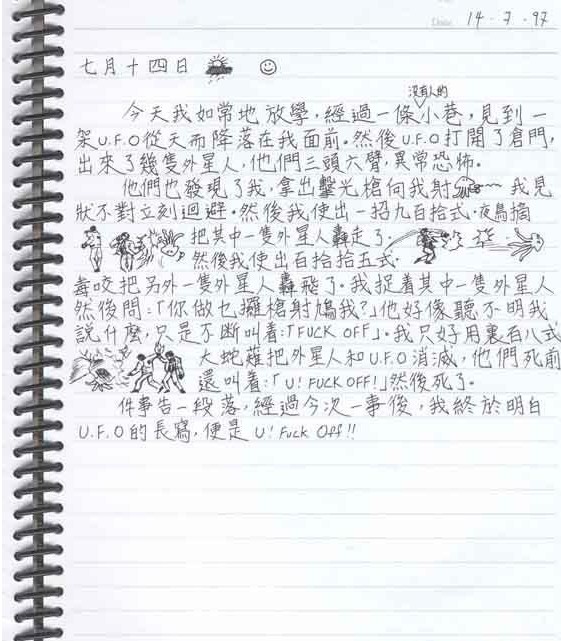 Date 14 - 7 - 97
七月十四日
沒有人的
今天我如常地放學，經過一條小巷，見到一
架U.F.O從天而降落在我面前。然後U.F.O打開了倉門，
出來了幾隻外星人，他們三頭六臂，異常恐怖。
他們也發現了我，拿出擊光槍向我射 我見
狀不對立刻迴避。然後我使出一招九百拾式·夜鳥摘
把其中一隻外星人轟走了。
然後我使出百拾拾五式·
毒咬把另外一隻外星人轟飛了。我捉着其中一隻外星人
然後問：「你做乜攞槍射鳩我？」他好像聽不明我
說什麼，只是不斷叫着：「FUCK OFF」。我只好用裏百八式
大蛇薙把外星人和U.F.O消滅，他們死前
還叫着：「U! FUCK OFF!」然後死了。
件事告一段落，經過今次一事後，我終於明白
U.F.O的長寫，便是 U! Fuck Off!!